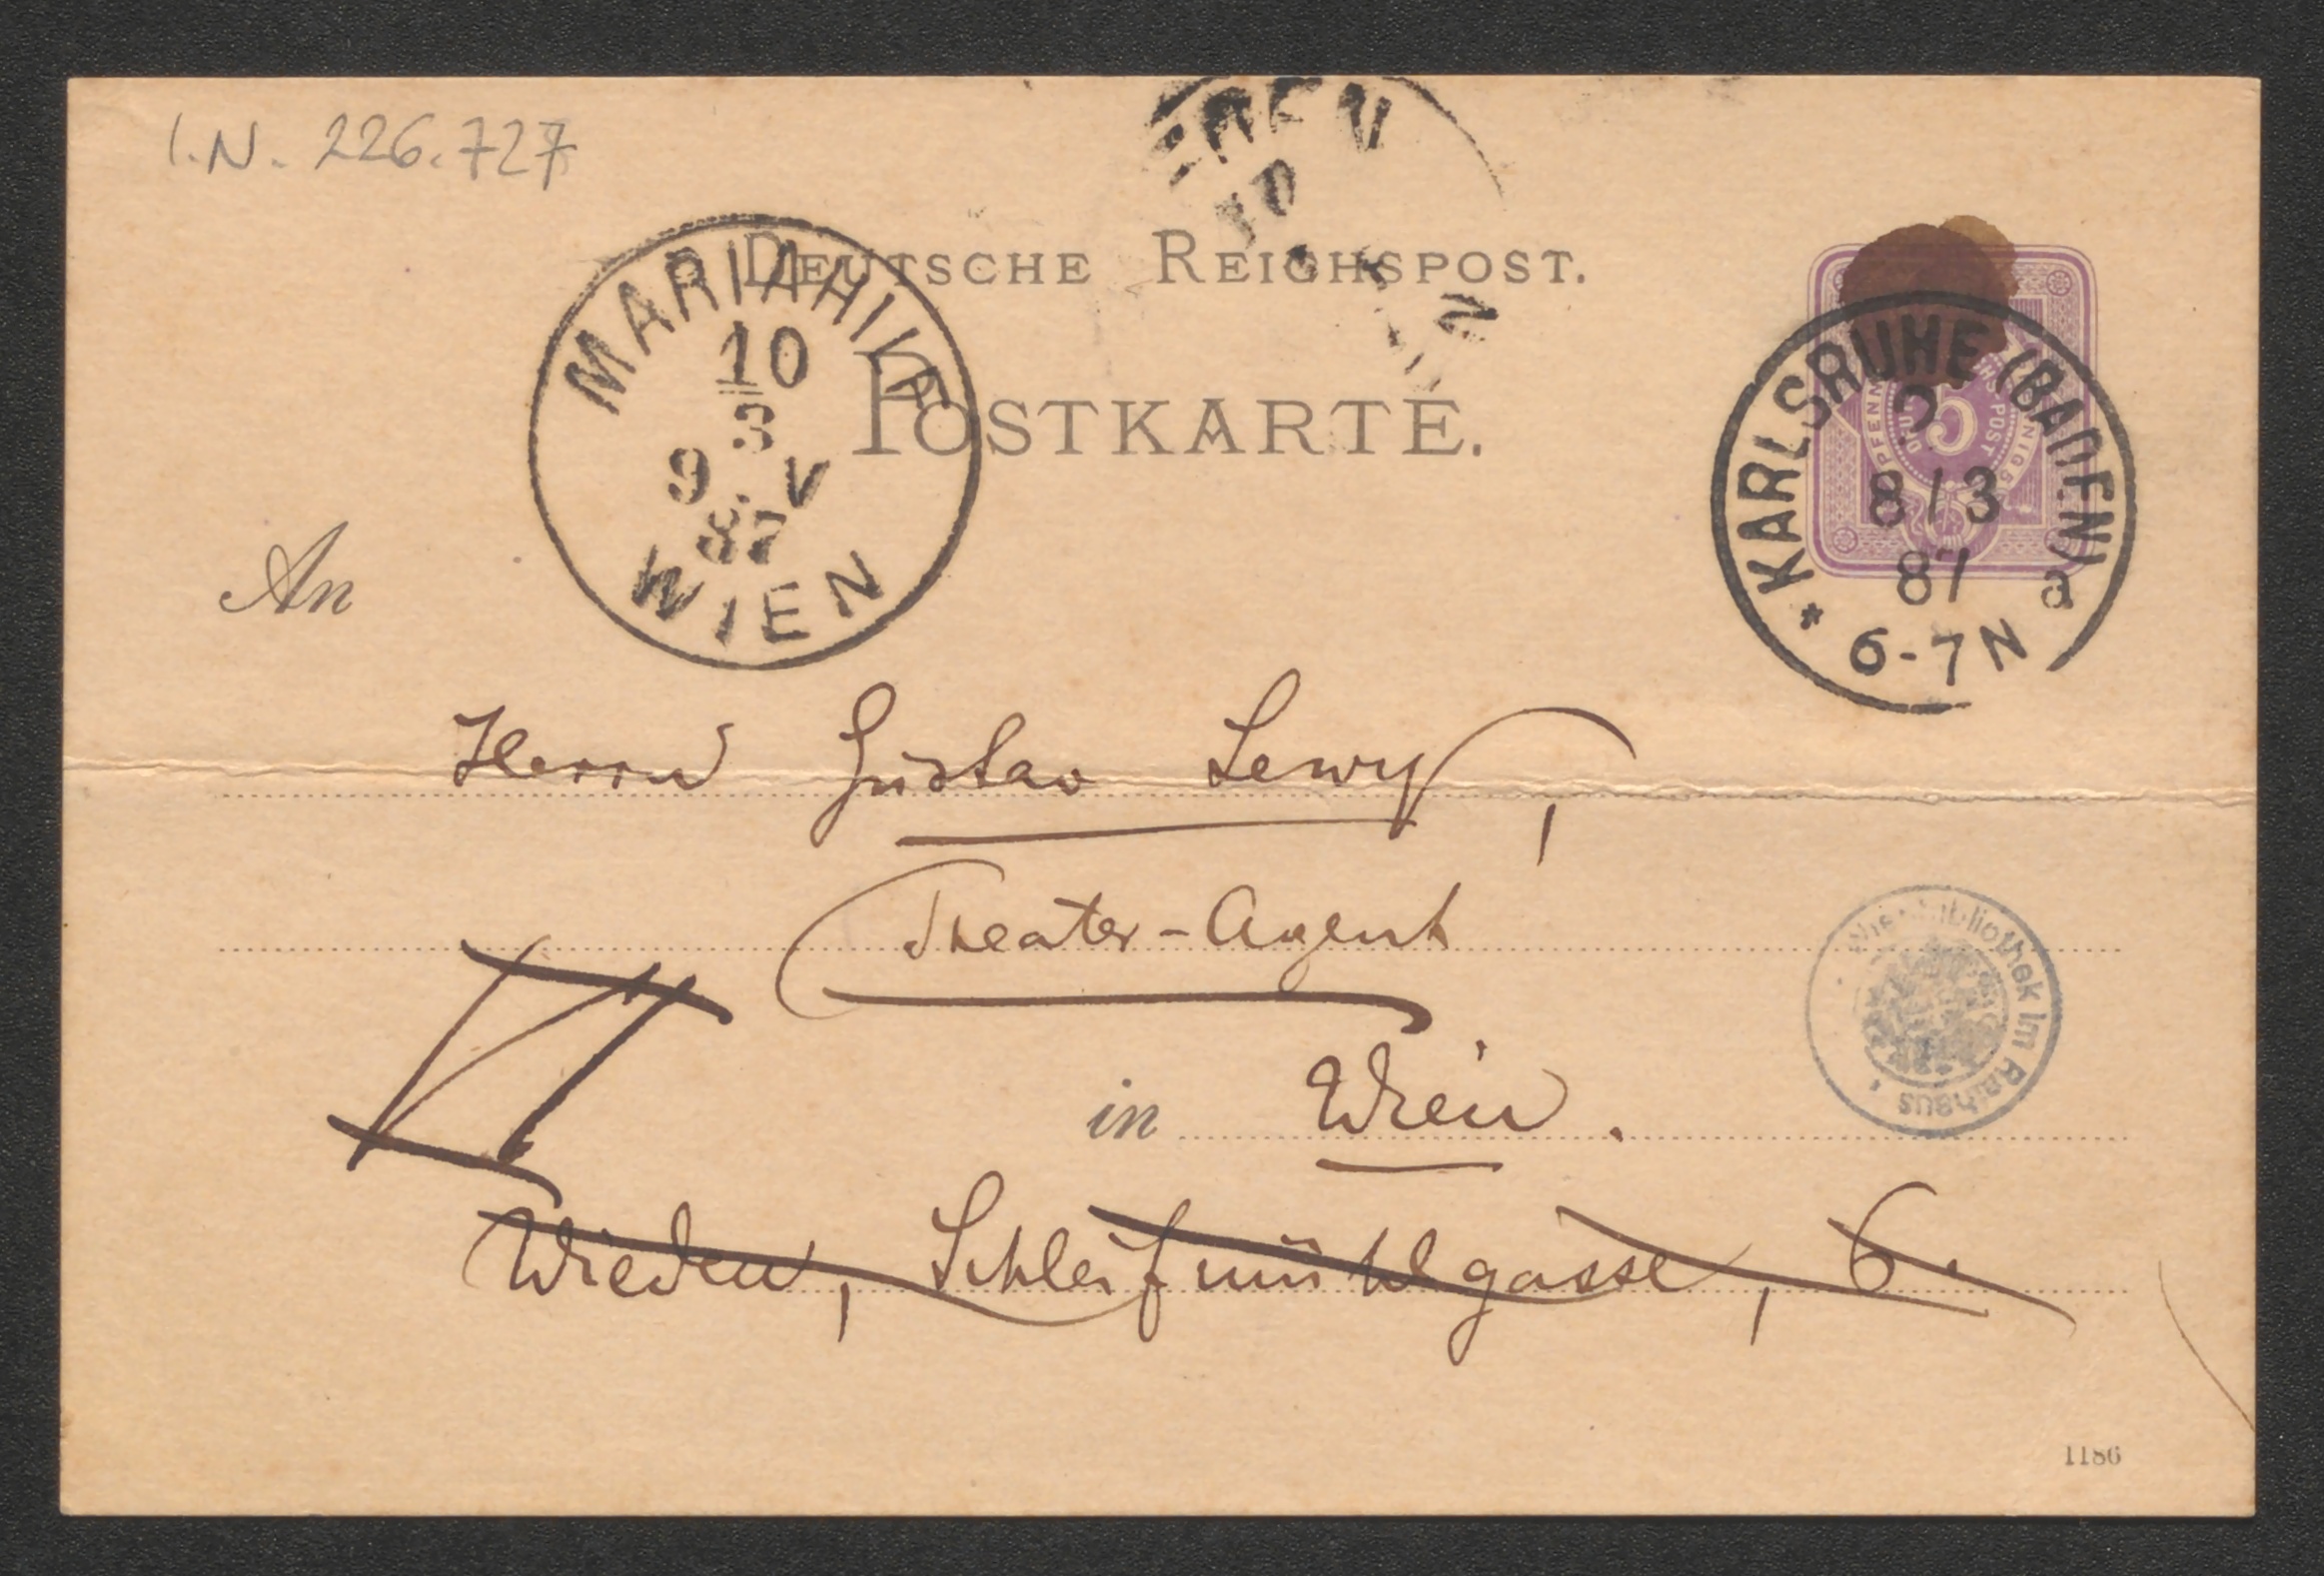 I.N. 226.727
DEUTSCHE REICHSPOST.
POSTKARTE.
MARIAHILF
10
3
9. V
87
WIEN
KARLSRUHE (BADEN)
8/3
87
* 6-7N a
5
An
Herrn Gustav Lewy,
Theater-Agent
in Wien.
Wieden, Schleifmühlgasse, 6.
Wienbibliothek im Rathaus
1186